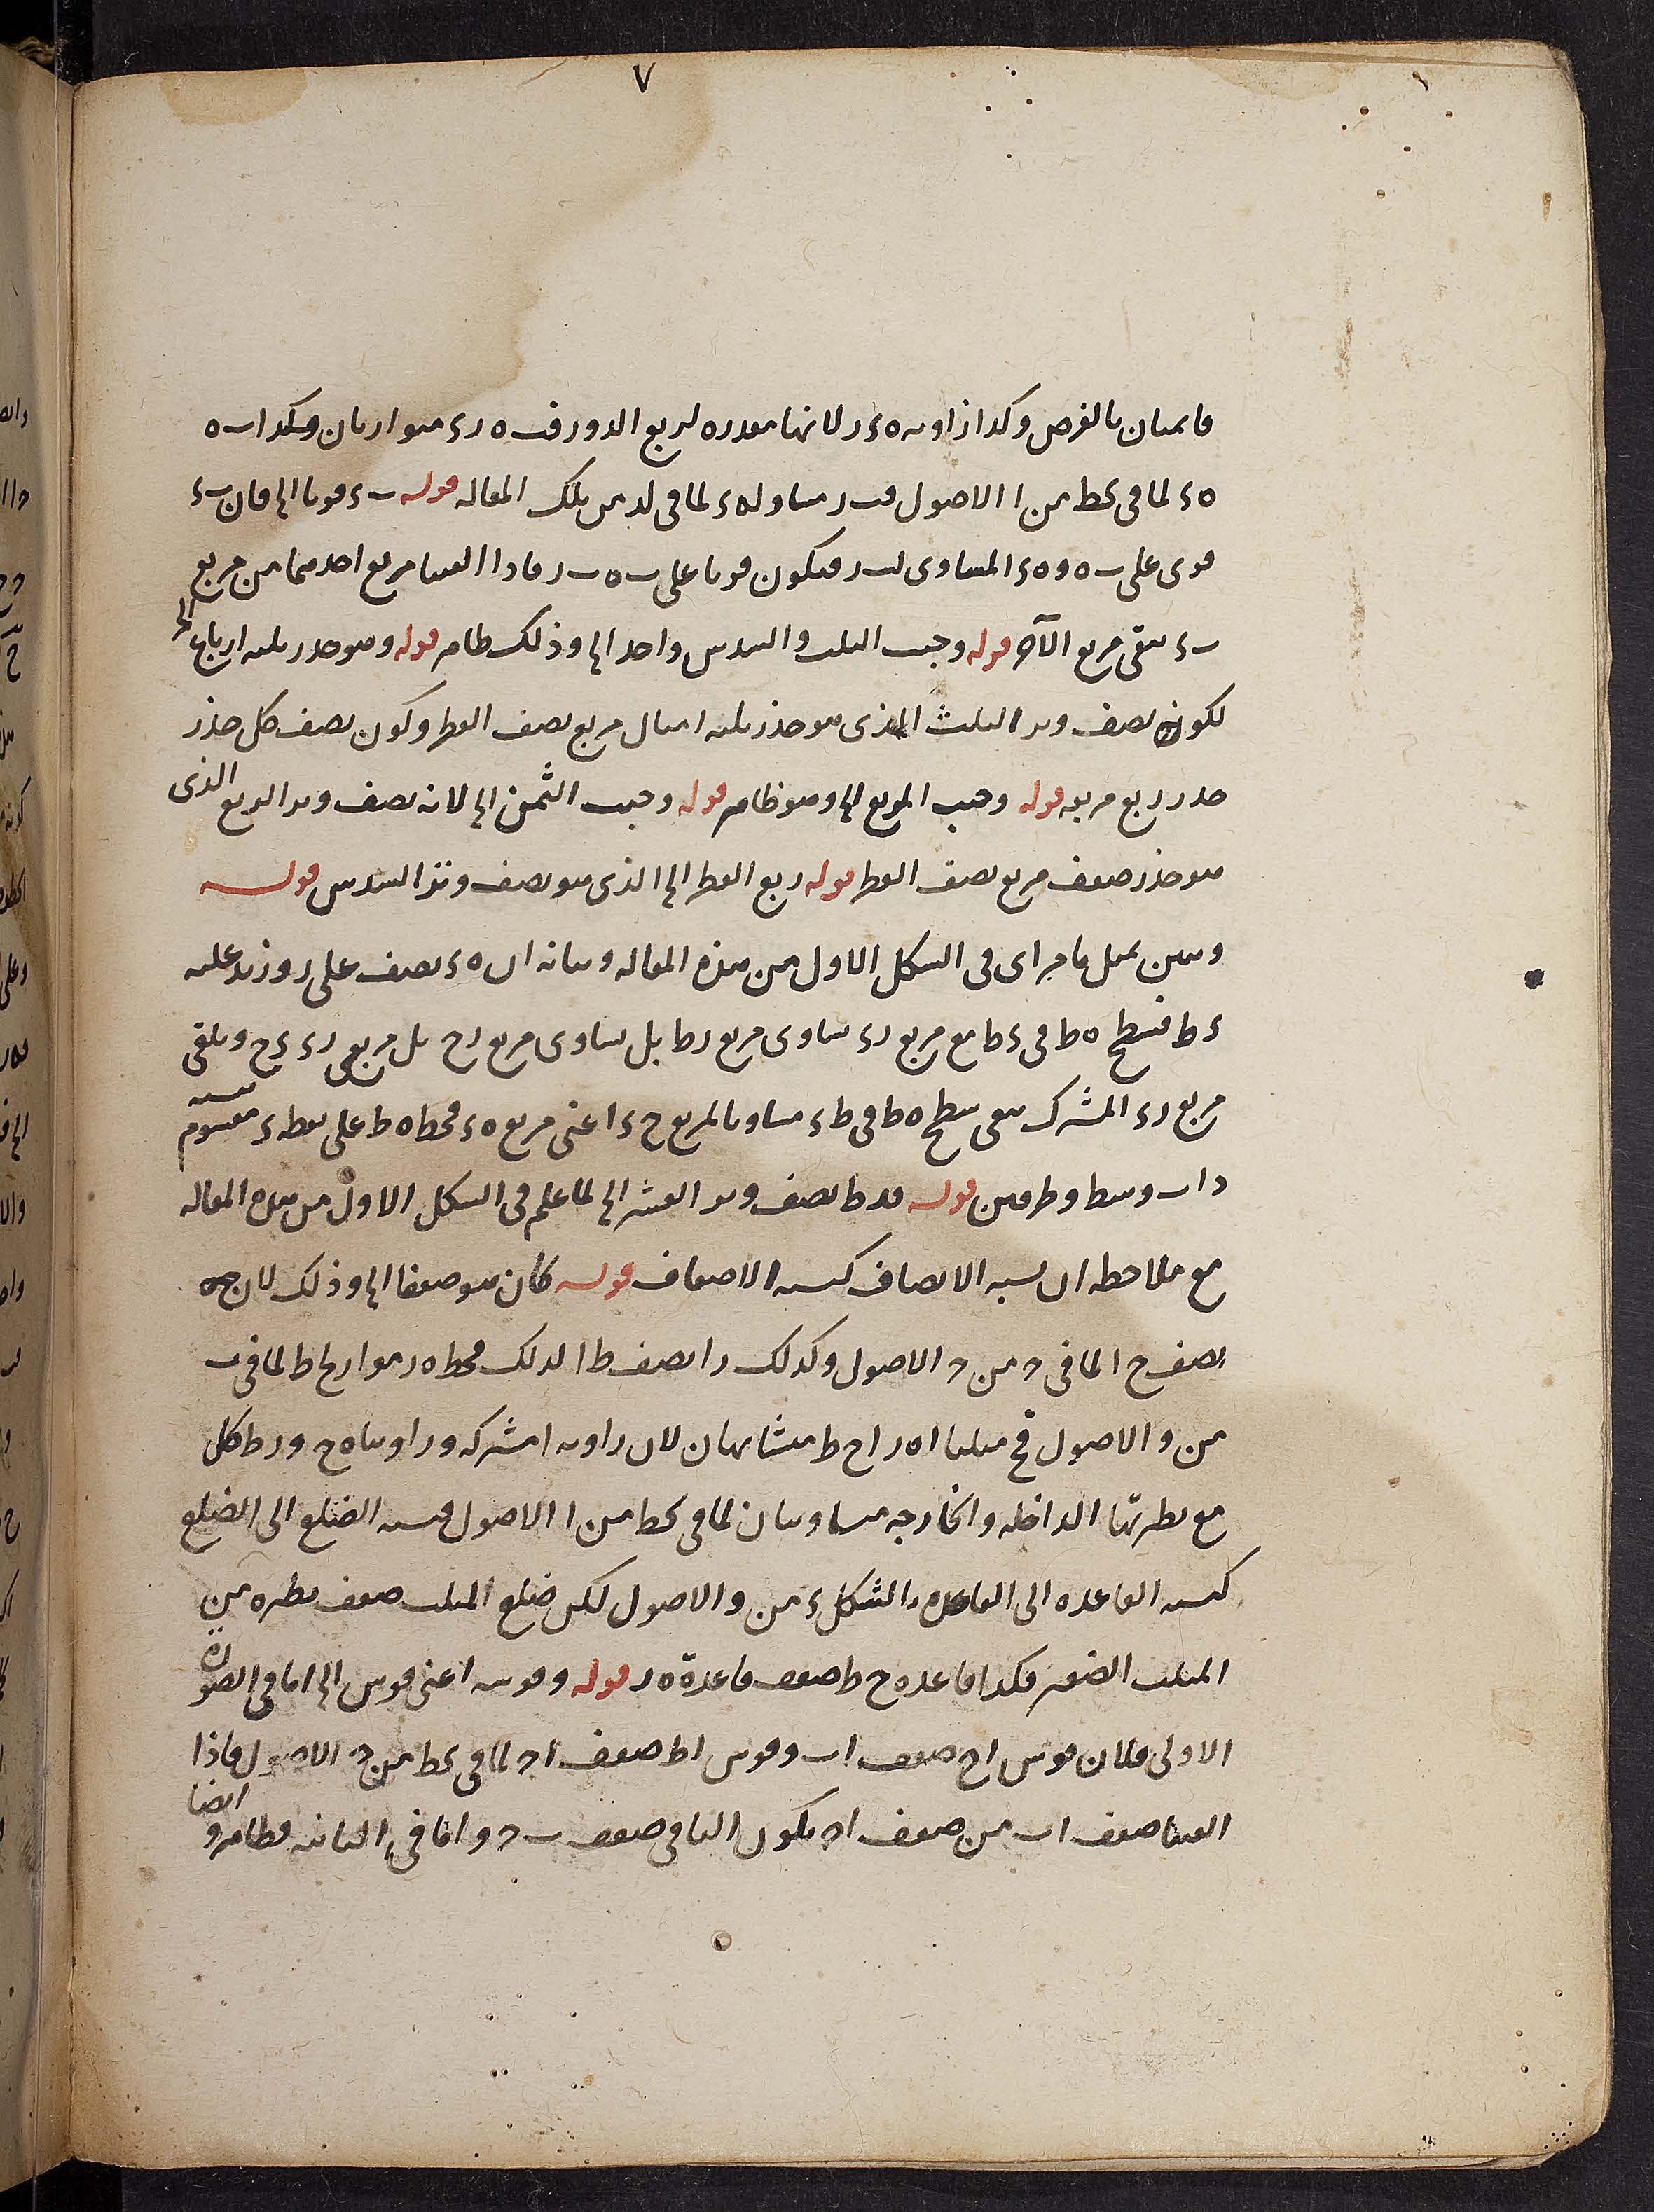 ٧
قائمتان بالفرض وكذا زاويه ه ء ر لانها مقدره لربع الدور فب ه ر ء متوازيان وكذا ب ه
ه ء لما فى كط من ا الاصول فب ر مساو له ء لما فى لد من تلك المقاله قوله ب ء قويا الخ فان ب ء
قوى على ب ه و ه ء المساوى لب ر فيكون قويا على ب ه ب ر فاذا القينا مربع احدهما من مربع
ب ء بقى مربع الآخر قوله وجيب الثلث والسدس واحد الخ وذلك ظاهر قوله وهو جذر ثلثه ارباع الخ
لكونه نصف وتر الثلث الذى هو جذر ثلثه امثال مربع نصف القطر وكون نصف كل جذر
جذر ربع مربعه قوله وجيب الربع الخ وهو ظاهر قوله وجيب الثمن الخ لانه نصف وتر الربع الذى
هو جذر ضعف مربع نصف القطر قوله ربع القطر الخ الذى هو نصف وتر السدس قوله
وتبين بمثل ما مر اى فى الشكل الاول من هذه المقاله وبيانه ان ه ء نصف على ر وزيد عليه
ء ط فسطح ه ط فى ء ط مع مربع ر ء يساوى مربع ر ط بل يساوى مربع ر ح بل مربعى ر ء ء ح ويلقى
مربع ر ء المشترك يبقى سطح ه ط فى ط ء مساويا لمربع ح ء اعنى مربع ه ء فخط ه ط على نقطه ء مقسوم نسبه
ذات وسط وطرفين قوله فد ط نصف وتر العشر الخ لما علم فى الشكل الاول من هذه المقاله
مع ملاحظه ان نسبه الانصاف كنسبه الاضعاف قوله كان هو ضعفا الخ وذلك لان ح ه
نصف ح ا لما فى ج من ج الاصول وكذلك ر ا نصف ط ا لذلك فخط ه ر مواز لخط ح ط لما فى ب
من و الاصول فح مثلثا ا ه ر ا ح ط متشابهان لان زاويه ا مشتركه وزاويتا ه ح و ر ط كل
مع نظيرتها الداخله والخارجه متساويتان لما فى كط من ا الاصول فنسبه الضلع الى الضلع
كنسبه القاعده الى القاعده بالشكل ء من و الاصول لكن ضلع المثلث ضعف نظيره من
المثلث الصغير فكذا قاعده ح ط ضعف قاعدة ه ر قوله وقوسه اعنى قوس الخ اما فى الصورة
الاولى فلان قوس ا ح ضعف ا ب وقوس ا ط ضعف ا ج لما فى كط من ج الاصول فاذا
القينا ضعف ا ب من ضعف ا ج يكون الباقى ضعف ب ج واما فى الثانيه فظاهر و ايضا